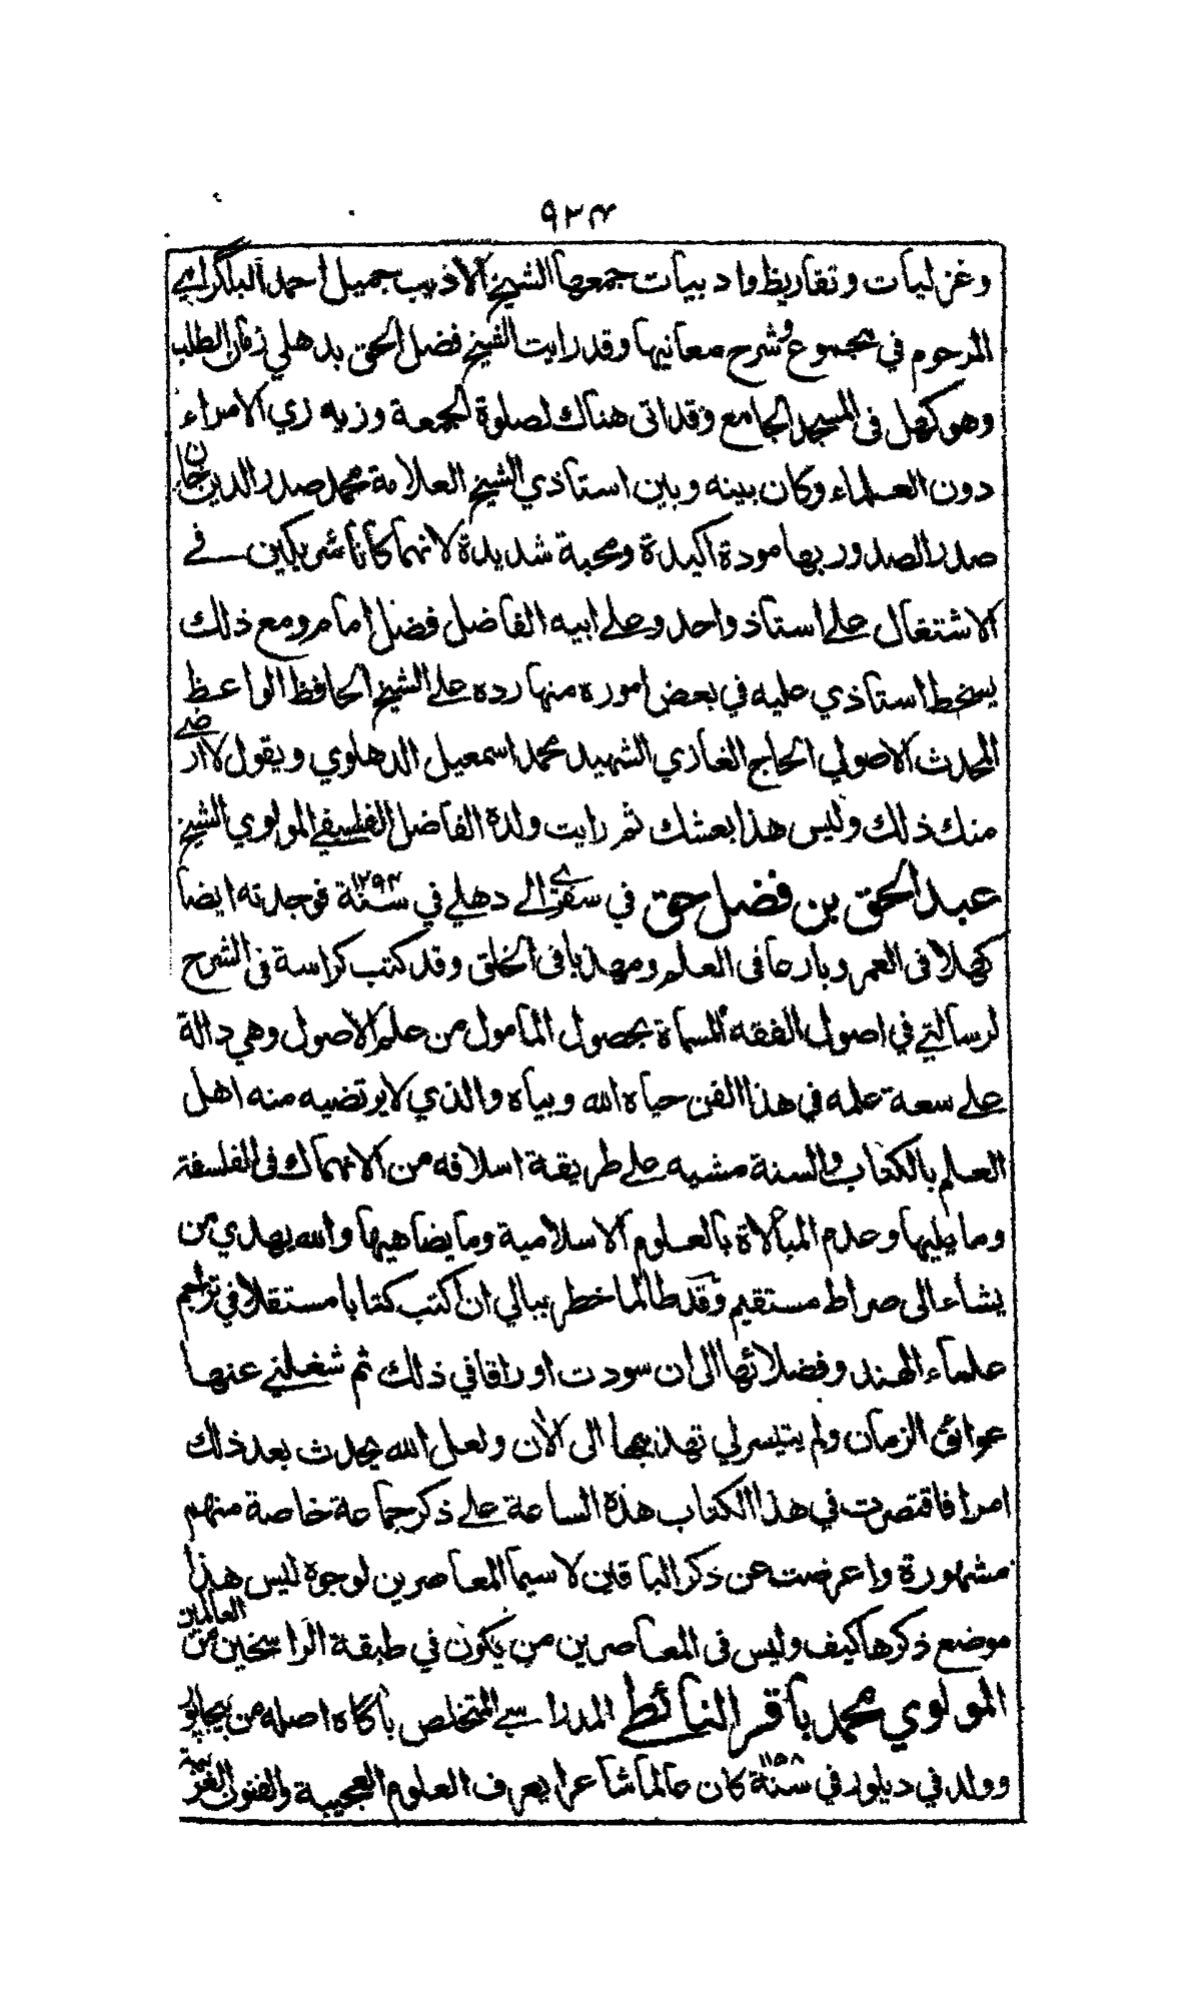 ٩٢٤
وغزليات وتقاريظ وادبيات جمعها الشيخ الاديب جميل احمد البلگرامي
المرحوم في مجموع وشرح معانيها وقد رايت الشيخ فضل الحق بدهلي زمان الطلب
وهو كهل في المسجد الجامع وقد اتى هناك لصلوة الجمعة وزيه زي الامراء
دون العلماء وكان بينه وبين استاذي الشيخ العلامة محمد صدر الدين خان
صدر الصدور بها مودة اكيدة ومحبة شديدة لانهما كانا شريكين في
الاشتغال على استاذ واحد وعلى ابيه الفاضل فضل امام ومع ذلك
يسخط استاذي عليه في بعض اموره منها رده على الشيخ الحافظ الواعظ
المحدث الاصولي الحاج الغازي الشهيد محمد اسمعيل الدهلوي ويقول لا ارضى
منك ذلك وليس هذا بعشك ثم رايت ولده الفاضل الفلسفي المولوي الشيخ
عبد الحق بن فضل حق في سفري الى دهلي في سنة ١٢٩٤ فوجدته ايضا
كهلا في العمر وبارعا في العلم ومهذبا في الخلق وقد كتب كراسة في الشرح
لرسالتي في اصول الفقه المسماة بحصول المامول من علم الاصول وهي دالة
على سعة علمه في هذا الفن حياه الله وبياه والذي لا يرتضيه منه اهل
العلم بالكتاب والسنة مشيه على طريقة اسلافه من الانهماك في الفلسفة
وما يليها وعدم المبالاة بالعلوم الاسلامية وما يضاهيها والله يهدي من
يشاء الى صراط مستقيم وقد طالما خطر ببالي ان اكتب كتابا مستقلا في تراجم
علماء الهند وفضلائها الى ان سودت اوراقا في ذلك ثم شغلني عنها
عوائق الزمان ولم يتيسر لي تهذيبها الى الآن ولعل الله يحدث بعد ذلك
امرا فاقتصرت في هذا الكتاب هذه الساعة على ذكر جماعة خاصة منهم
مشهورة واعرضت عن ذكر الباقين لا سيما المعاصرين لوجوه ليس هذا
موضع ذكرها كيف وليس في المعاصرين من يكون في طبقة الراسخين من العالمين
المولوي محمد باقر النائطي المدراسي المتخلص بآگاه اصله من بيجاپور
وولد في ديلور في سنة ١١٥٨ كان عالما شاعرا يعرف العلوم العجيبة والفنون الغريبة